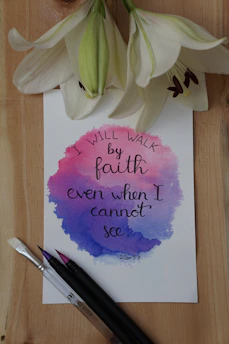 I WILL WALK
by
faith
even when I
cannot
see